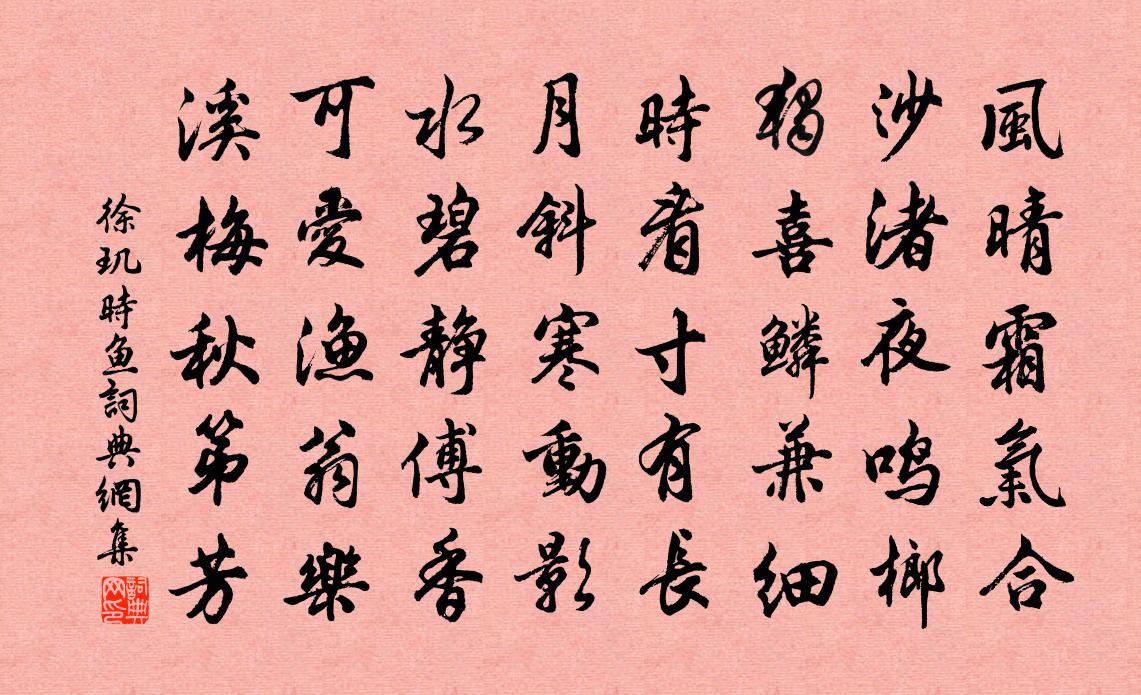 風晴霜氣合
沙渚夜鳴榔
獨喜鱗兼細
時看寸有長
月斜寒動影
水碧靜傅香
可愛漁翁樂
溪梅秋第芳
徐玑時魚詞典網集
詞典网印